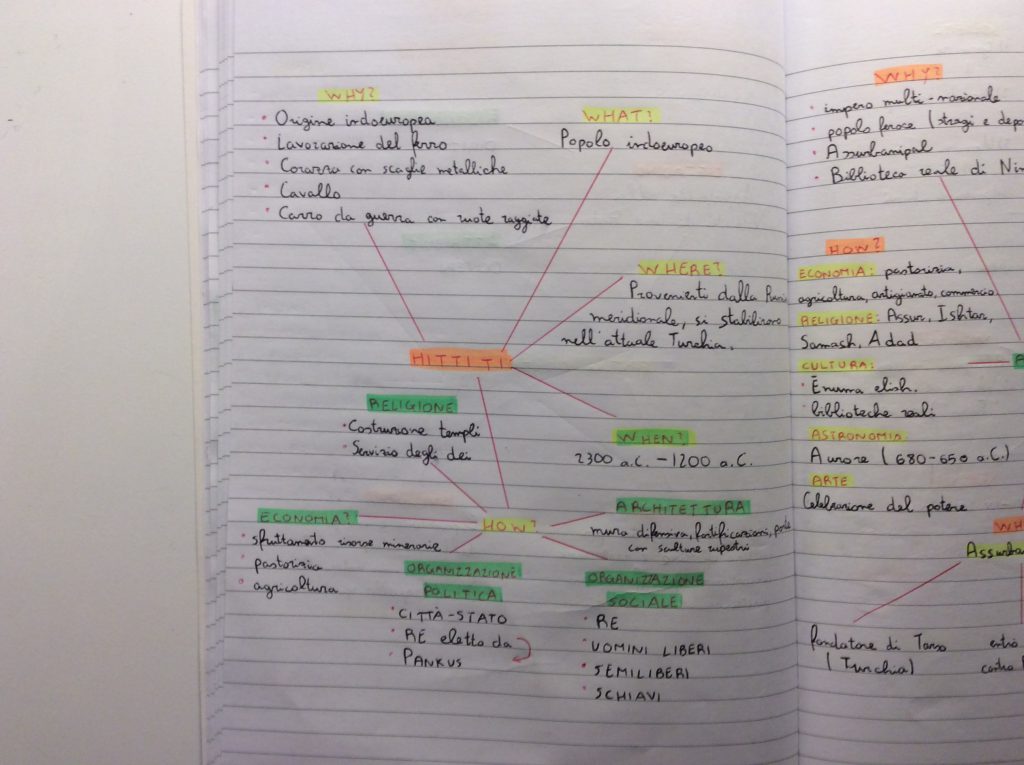 WHY?
• Origine indoeuropea
• Lavorazione del ferro
• Corazza con scaglie metalliche
• Cavallo
• Carro da guerra con ruote raggiate
WHAT?
Popolo indoeuropeo
WHERE?
Provenienti dalla
meridionale, si stabilirono
nell'attuale Turchia.
HITTITI
RELIGIONE
• Costruzione templi
• Servizio degli dei
WHEN?
2300 a.C. - 1200 a.C.
ECONOMIA?
• sfruttamento risorse minerarie
• pastorizia
• agricoltura
HOW?
ARCHITETTURA
mura difensiva, fortificazioni,
con sculture rupestri
ORGANIZZAZIONE
POLITICA
• CITTÀ-STATO
• RE eletto da
• PANKUS
ORGANIZZAZIONE
SOCIALE
• RE
• UOMINI LIBERI
• SEMILIBERI
• SCHIAVI
WHY?
• impero multi-nazionale
• popolo feroce (stragi e depo
• Assurbanipal
• Biblioteca reale di Nin
HOW?
ECONOMIA: pastorizia,
agricoltura, artigianato, commercio
RELIGIONE: Assur, Ishtar,
Samash, Adad
CULTURA:
• Enuma elish.
• biblioteche reali
ASTRONOMIA:
Aurore (680-650 a.C.)
ARTE
Celebrazione del potere
WH
Assurba
fondatore di Tarso
(Turchia)
entrò
contro